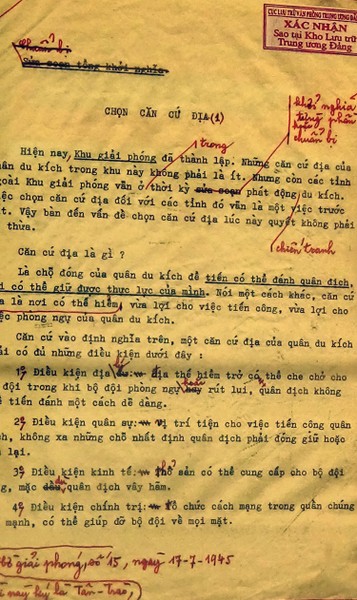 CỤC LƯU TRỮ VĂN PHÒNG TRUNG ƯƠNG ĐẢNG
XÁC NHẬN
Sao tại Kho Lưu trữ
Trung ương Đảng
Chuẩn bị
Sửa soạn tổng khởi nghĩa
CHỌN CĂN CỨ ĐỊA (1)
khởi nghĩa
từng phần
chuẩn bị
trong
Hiện nay, Khu giải phóng đã thành lập. Những căn cứ địa của
quân du kích trong khu này không phải là ít. Nhưng còn các tỉnh
ngoài Khu giải phóng vẫn ở thời kỳ sửa soạn phát động du kích.
việc chọn căn cứ địa đối với các tỉnh đó vẫn là một việc trước
Vậy bàn đến vấn đề chọn căn cứ địa lúc này quyết không phải
thừa.
chiến tranh
Căn cứ địa là gì ?
Là chỗ đóng của quân du kích để tiến có thể đánh quân địch,
có thể giữ được thực lực của mình. Nói một cách khác, căn cứ
là nơi có thể hiểm, vừa lợi cho việc tiến công, vừa lợi cho
việc phòng ngự của quân du kích.
Căn cứ vào định nghĩa trên, một căn cứ địa của quân du kích
có đủ những điều kiện dưới đây :
1) Điều kiện địa thế hiểm trở có thể che chở cho
đội trong khi bộ đội phòng ngự hay rút lui, quân địch không
tiến đánh một cách dễ dàng.
hoặc
2) Điều kiện quân sự: vị trí tiện cho việc tiến công quân
địch, không xa những chỗ nhất định quân địch phải đóng giữ hoặc
lại.
3) Điều kiện kinh tế: thổ sản có thể cung cấp cho bộ đội
mặc dầu quân địch vây hãm.
dù
4) Điều kiện chính trị: tổ chức cách mạng trong quần chúng
mạnh, có thể giúp đỡ bộ đội về mọi mặt.
giải phóng, số 15, ngày 17-7-1945
nay ký là Tân-Trào,